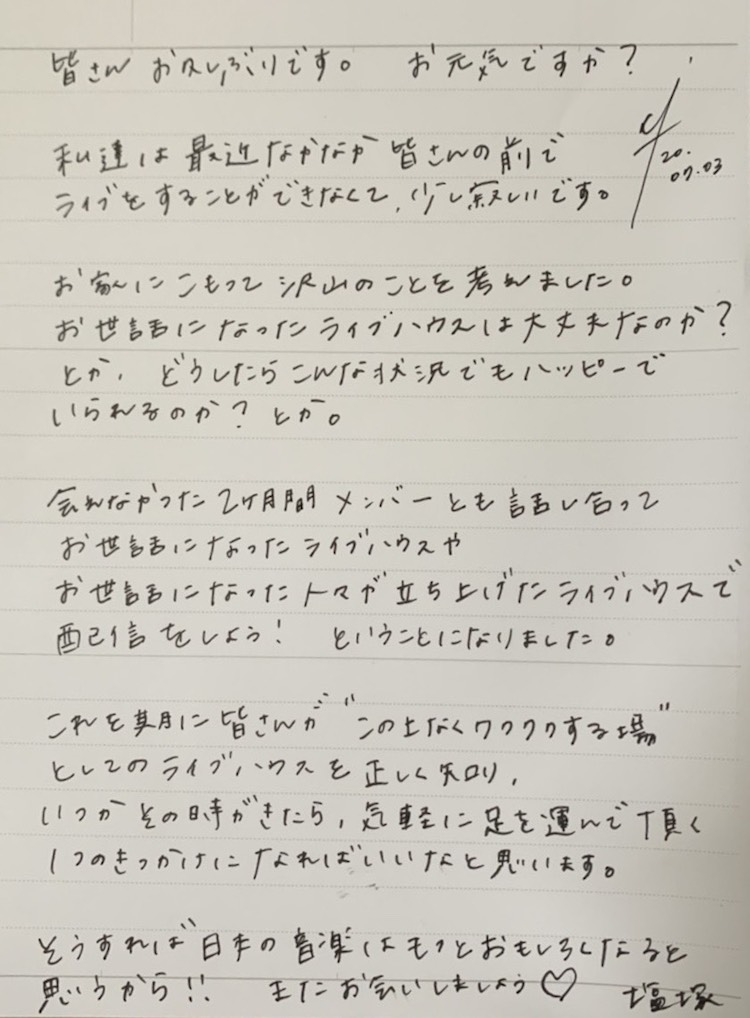 皆さん お久しぶりです。 お元気ですか?
20.
07.03
私達は最近なかなか皆さんの前で
ライブをすることができなくて、少し寂しいです。
お家にこもって沢山のことを考えました。
お世話になったライブハウスは大丈夫なのか?
とか、どうしたらこんな状況でもハッピーで
いられるのか?とか。
会えなかった2ヶ月間メンバーとも話し合って
お世話になったライブハウスや
お世話になったトマが立ち上げたライブハウスで
配信をしよう! ということになりました。
これを期に皆さんが"この上なくワクワクする場"
としてのライブハウスを正しく知り、
いつかその時がきたら、気軽に足を運んで頂く
1つのきっかけになればいいなと思います。
そうすれば日本の音楽はもっとおもしろくなると
思うから!! またお会いしましょう♡ 塩塚